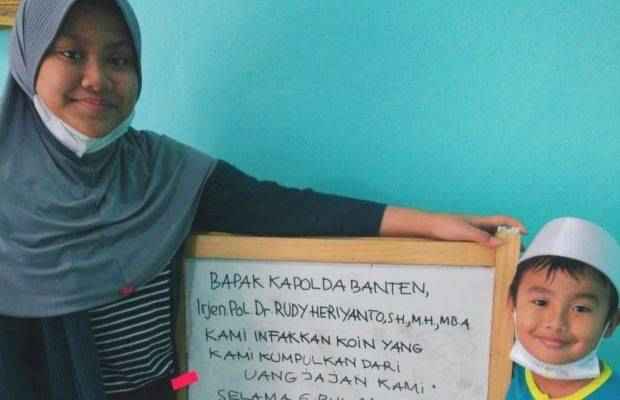 BAPAK KAPOLDA BANTEN,
Irjen.Pol. Dr. RUDY HERIYANTO,S.H.,M.H.,MB.A
KAMI INFAKKAN KOIN YANG
KAMI KUMPULKAN DARI
UANG JAJAN KAMI
SELAMA 6